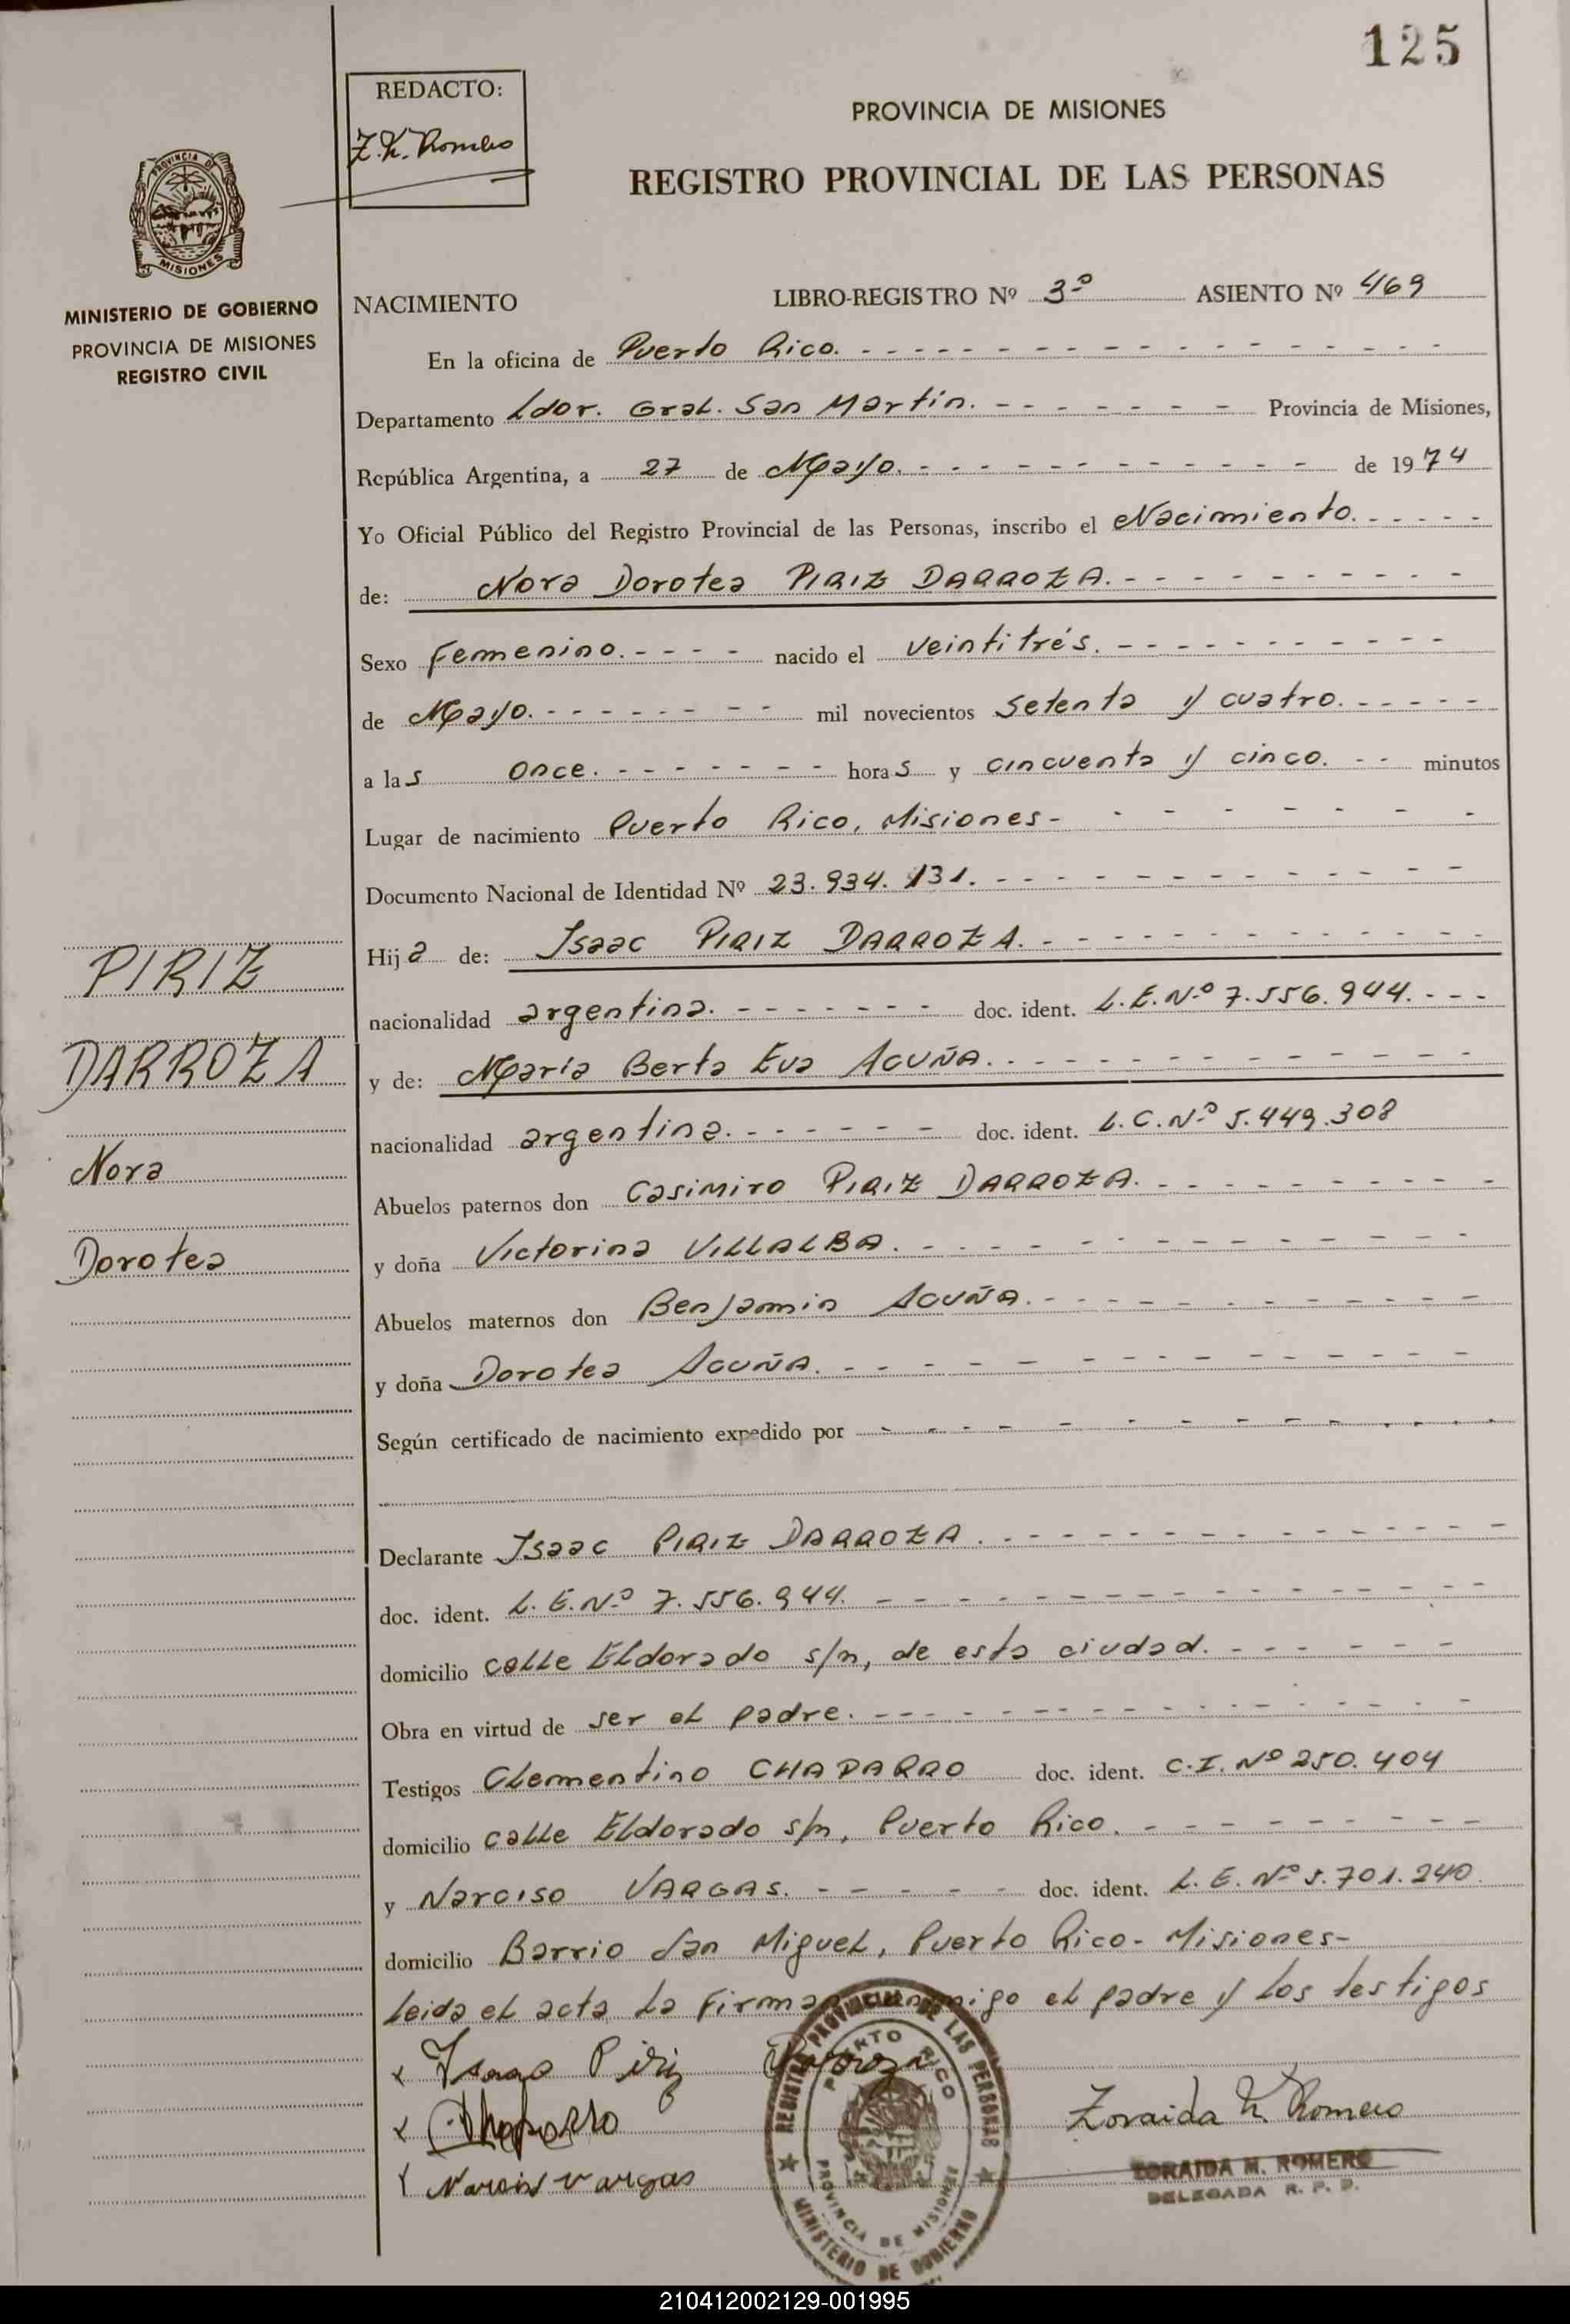 125
REDACTO:
Z. K. Romero
PROVINCIA DE MISIONES
REGISTRO PROVINCIAL DE LAS PERSONAS
PROVINCIA DE
MISIONES
MINISTERIO DE GOBIERNO
PROVINCIA DE MISIONES
REGISTRO CIVIL
NACIMIENTO LIBRO-REGISTRO Nº 3º ASIENTO Nº 469
En la oficina de Puerto Rico.
Departamento Ldor. Gral. San Martín. Provincia de Misiones,
República Argentina, a 27 de Mayo. de 1974
Yo Oficial Público del Registro Provincial de las Personas, inscribo el Nacimiento.
de: Nora Dorotea PIRIZ DARROZA.
Sexo Femenino. nacido el veintitrés.
de Mayo. mil novecientos setenta y cuatro.
a las once. horas y cincuenta y cinco. minutos
Lugar de nacimiento Puerto Rico, Misiones-
Documento Nacional de Identidad Nº 23.934.131.
Hija de: Isaac PIRIZ DARROZA.
nacionalidad argentina. doc. ident. L.E.Nº 7.556.944.
y de: María Berta Eva ACUÑA.
nacionalidad argentina. doc. ident. L.C.Nº 5.449.308
Abuelos paternos don Casimiro PIRIZ DARROZA.
y doña Victorina VILLALBA.
Abuelos maternos don Benjamin ACUÑA.
y doña Dorotea ACUÑA.
Según certificado de nacimiento expedido por
Declarante Isaac PIRIZ DARROZA.
doc. ident. L.E.Nº 7.556.944.
domicilio calle Eldorado s/n, de esta ciudad.
Obra en virtud de ser el padre.
Testigos Clementino CHAPARRO doc. ident. C.I. Nº 250.404
domicilio calle Eldorado s/n, Puerto Rico.
y Narciso VARGAS. doc. ident. L.E. Nº 5.701.240.
domicilio Barrio San Miguel, Puerto Rico- Misiones-
Leida el acta la firman conmigo el padre y los testigos
PIRIZ
DARROZA
Nora
Dorotea
x Isaac Piriz Darroza
x Chaparro
x Narciso Vargas
REGISTRO PROVINCIAL DE LAS PERSONAS
PUERTO RICO
PROVINCIA DE MISIONES
MINISTERIO DE GOBIERNO
Zoraida Romero
ZORAIDA M. ROMERO
DELEGADA R. P. P.
210412002129-001995